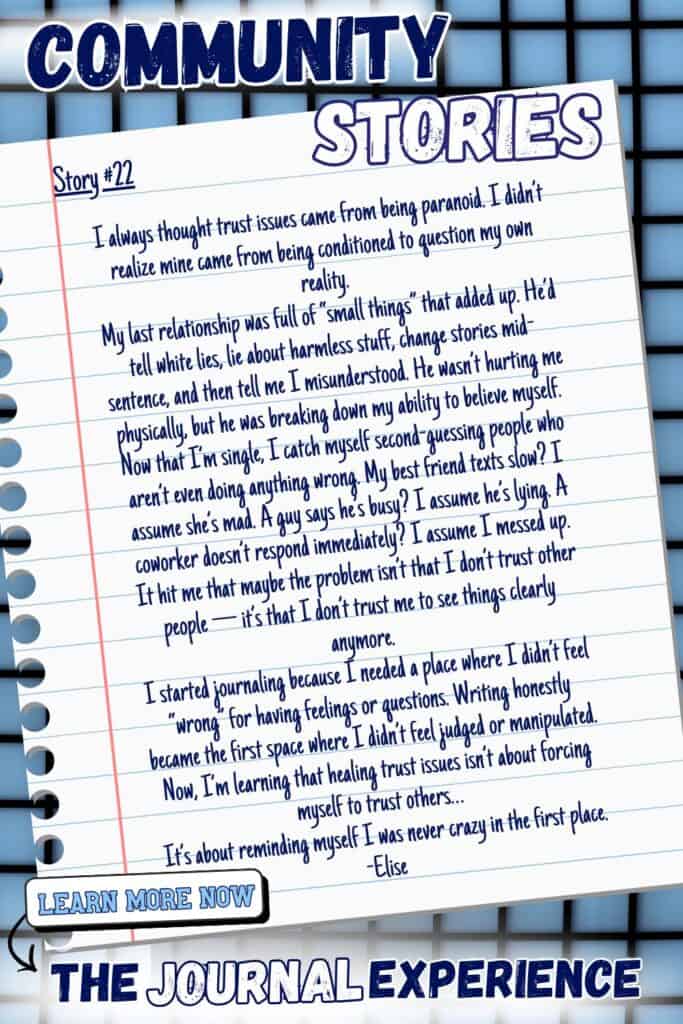 COMMUNITY
STORIES
Story #22
I always thought trust issues came from being paranoid. I didn't
realize mine came from being conditioned to question my own
reality.
My last relationship was full of "small things" that added up. He'd
tell white lies, lie about harmless stuff, change stories mid-
sentence, and then tell me I misunderstood. He wasn't hurting me
physically, but he was breaking down my ability to believe myself.
Now that I'm single, I catch myself second-guessing people who
aren't even doing anything wrong. My best friend texts slow? I
assume she's mad. A guy says he's busy? I assume he's lying. A
coworker doesn't respond immediately? I assume I messed up.
It hit me that maybe the problem isn't that I don't trust other
people — it's that I don't trust me to see things clearly
anymore.
I started journaling because I needed a place where I didn't feel
"wrong" for having feelings or questions. Writing honestly
became the first space where I didn't feel judged or manipulated.
Now, I'm learning that healing trust issues isn't about forcing
myself to trust others...
It's about reminding myself I was never crazy in the first place.
-Elise
LEARN MORE NOW
THE JOURNAL EXPERIENCE